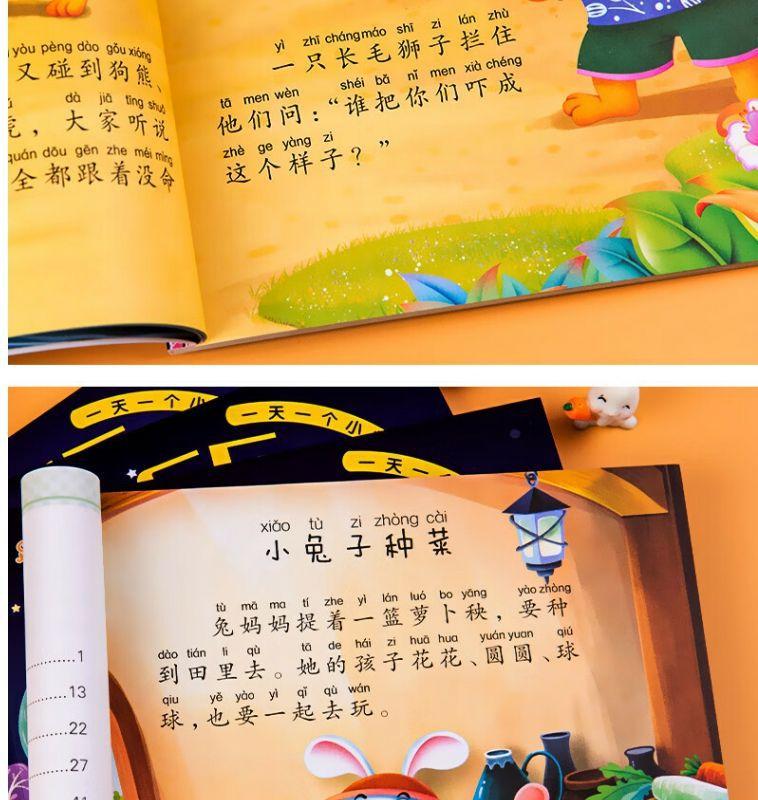 yòu pèng dào gǒu xióng
又碰到狗熊、
dà jiā tīng shuō
，大家听说
quán dōu gēn zhe méi mìng
全都跟着没命
yì zhī cháng máo shī zi lán zhù
一只长毛狮子拦住
tā men wèn shéi bǎ nǐ men xià chéng
他们问：“谁把你们吓成
zhè ge yàng zi
这个样子？”
一天一个小
一天一个小
一天一个
xiǎo tù zi zhòng cài
小兔子种菜
tù mā ma tí zhe yì lán luó bo yāng yào zhòng
兔妈妈提着一篮萝卜秧，要种
dào tián li qù tā de hái zi huā hua yuán yuan qiú
到田里去。她的孩子花花、圆圆、球
qiu yě yào yì qǐ qù wán
球，也要一起去玩。
1
13
22
27